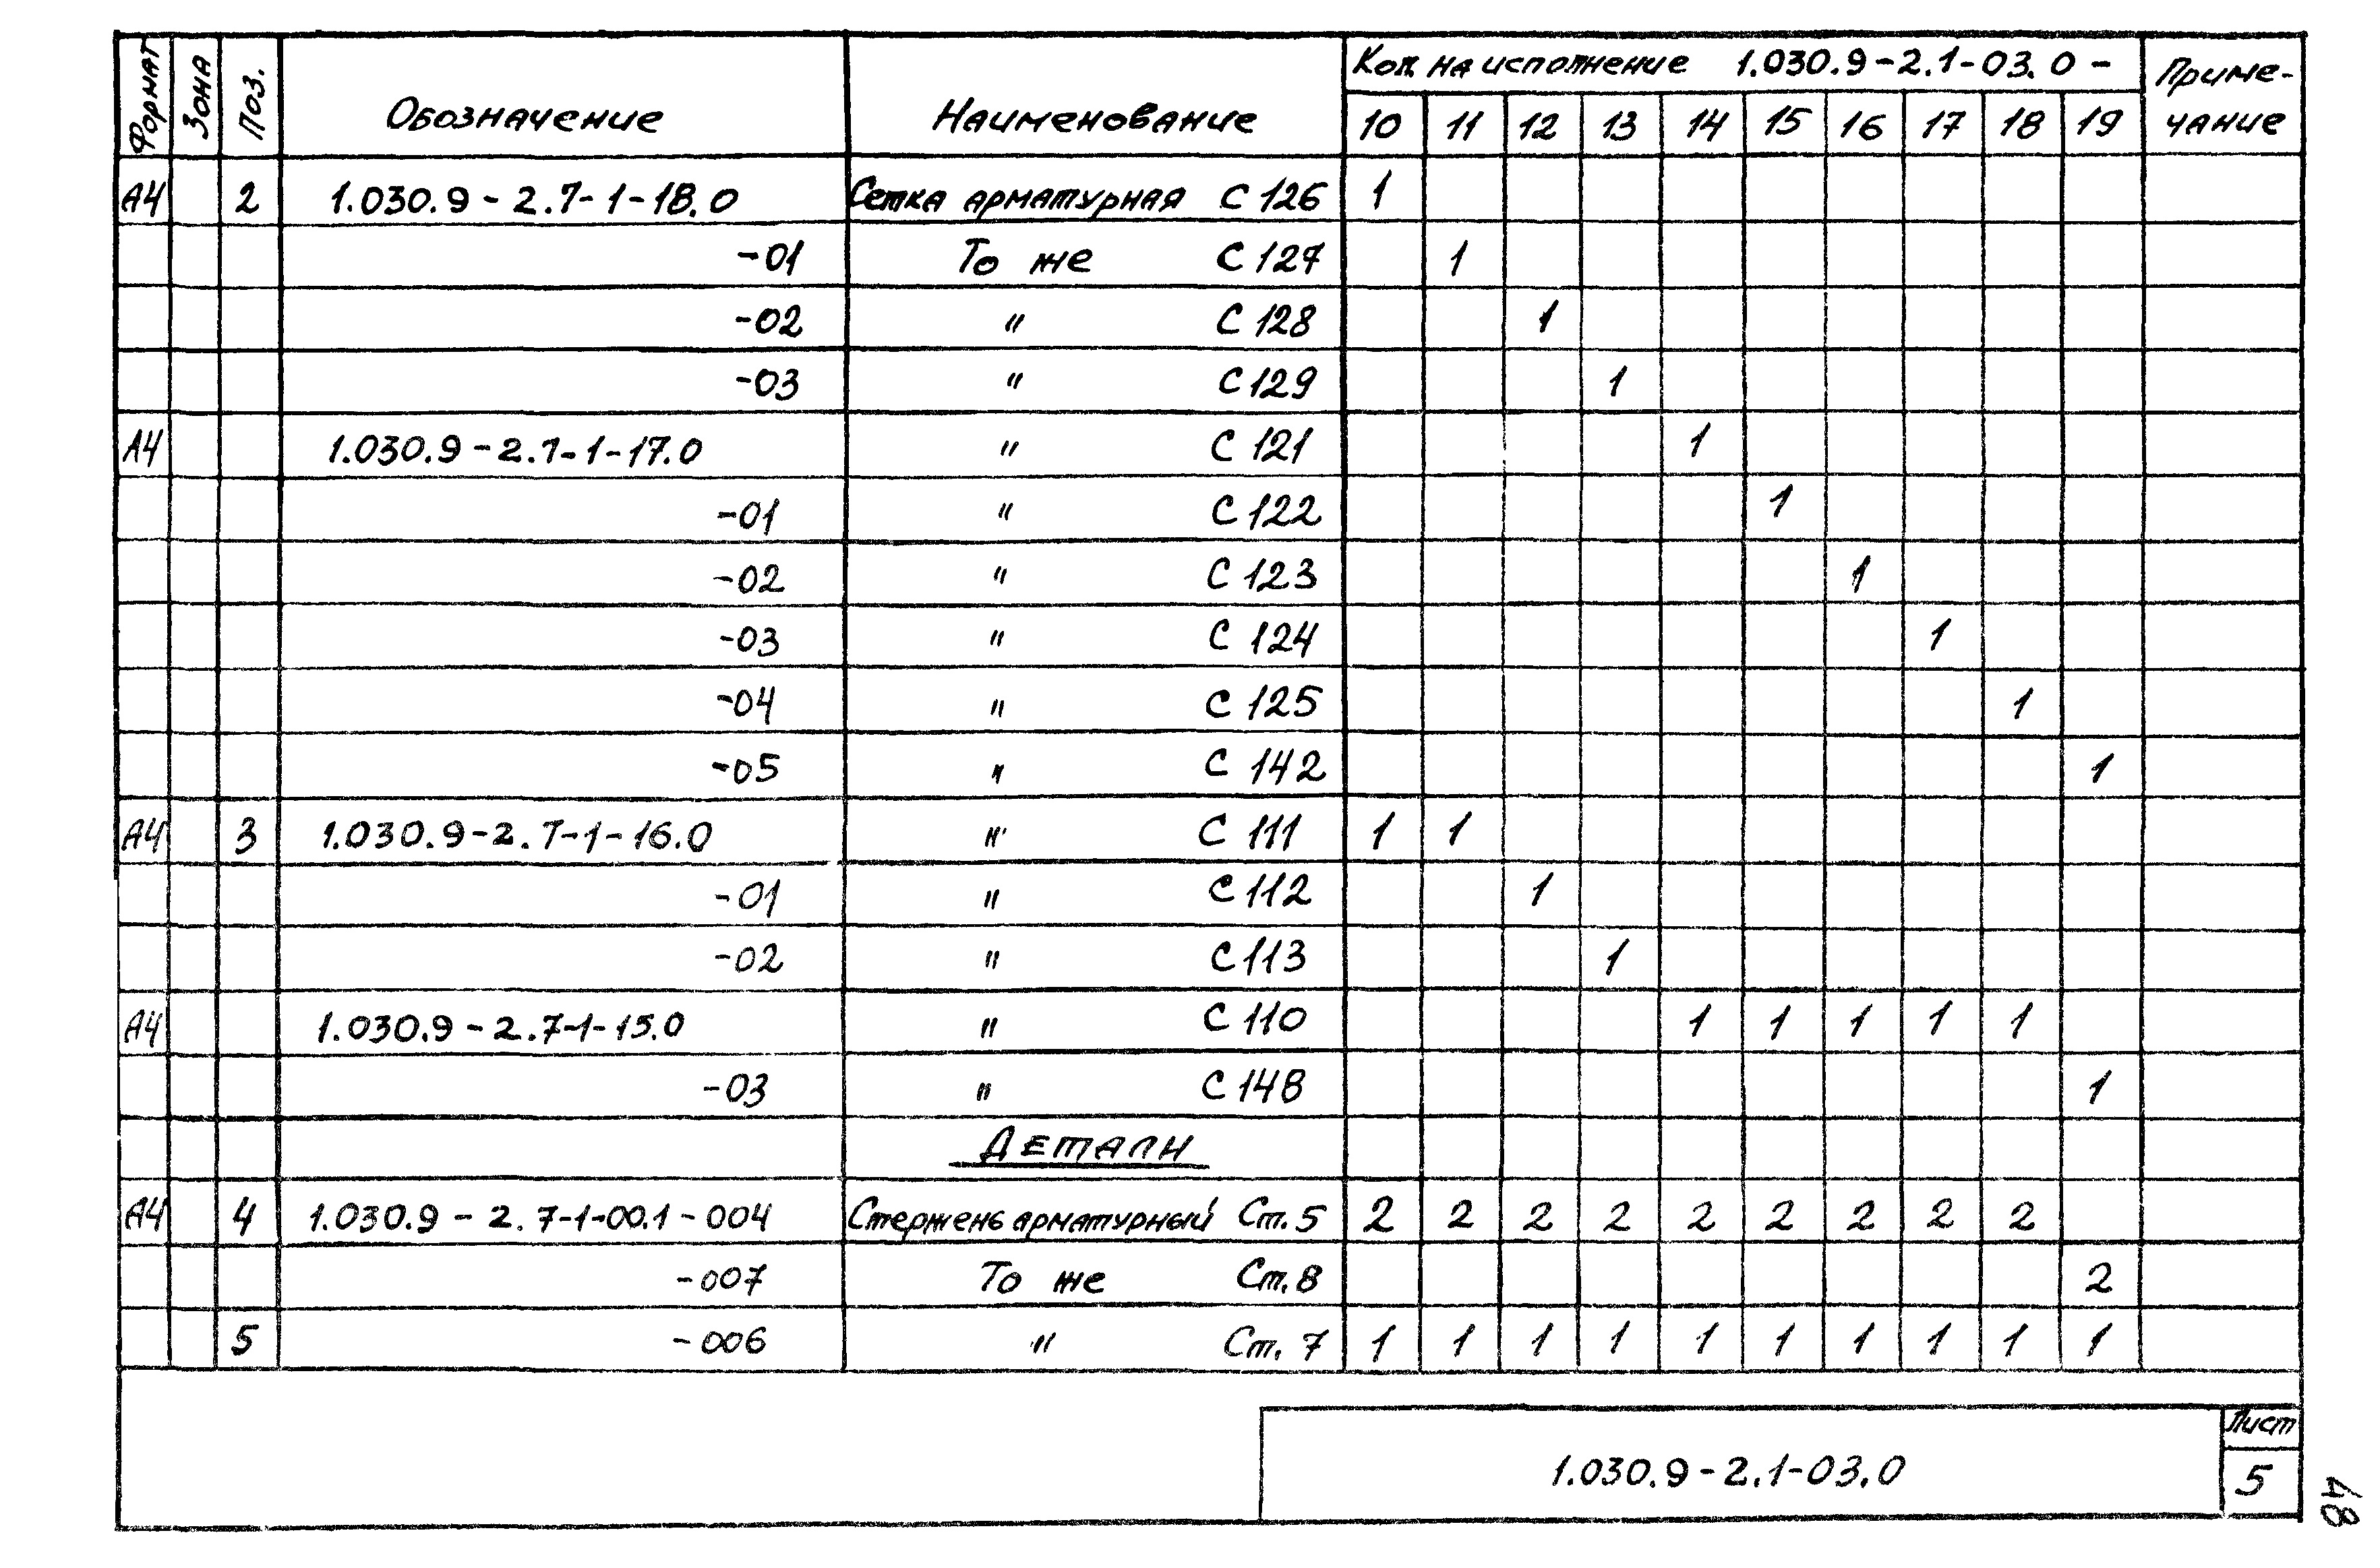 Формат Зона Поз. Обозначение Наименование Кол. на исполнение 1.030.9-2.1-03.0- Приме-
чание
10 11 12 13 14 15 16 17 18 19
А4 2 1.030.9-2.7-1-18.0 Сетка арматурная С 126 1
-01 То же С 127 1
-02 " С 128 1
-03 " С 129 1
А4 1.030.9-2.7-1-17.0 " С 121 1
-01 " С 122 1
-02 " С 123 1
-03 " С 124 1
-04 " С 125 1
-05 " С 142 1
А4 3 1.030.9-2.7-1-16.0 " С 111 1 1
-01 " С 112 1
-02 " С 113 1
А4 1.030.9-2.7-1-15.0 " С 110 1 1 1 1 1
-03 " С 148 1
Детали
А4 4 1.030.9-2.7-1-00.1-004 Стержень арматурный Ст.5 2 2 2 2 2 2 2 2 2
-007 То же Ст.8 2
5 -006 " Ст.7 1 1 1 1 1 1 1 1 1 1
1.030.9-2.1-03.0
Лист
5
48